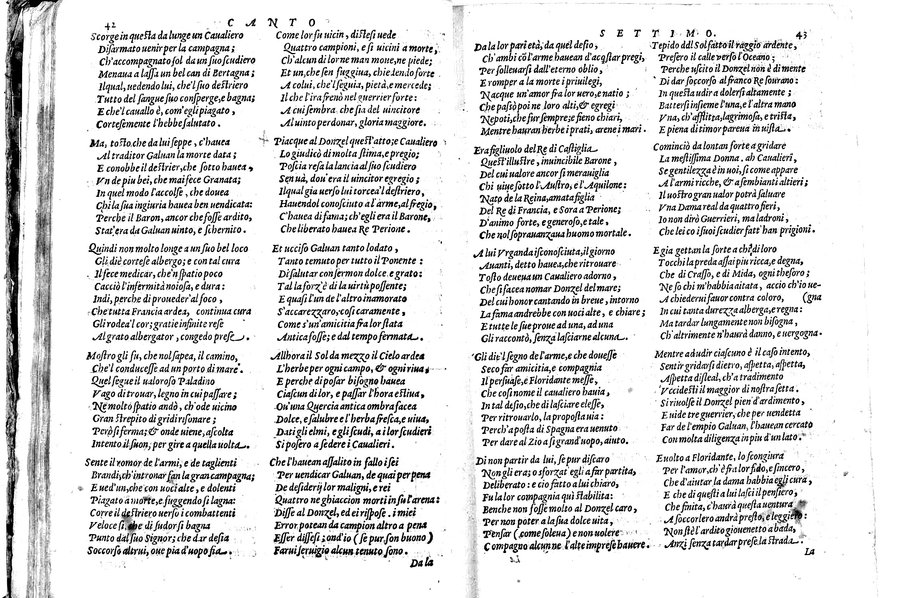 42
CANTO
Scorge in questa da lunge un Caualiero
Disarmato uenir per la campagna;
Ch'accompagnato sol da un suo scudiero
Menaua a lassa un bel can di Bertagna;
Ilqual, uedendo lui, che'l suo destriero
Tutto del sangue suo consperge, e bagna;
E che'l cauallo è, com'egli piagato,
Cortesemente l'hebbe salutato.
Ma, tosto, che da lui seppe, c'hauea
Al traditor Galuan la morte data;
E conobbe il destrier, che sotto hauea,
Vn de piu bei, che mai fece Granata;
In quel modo l'accolse, che douea
Chi la sua ingiuria hauea ben uendicata:
Perche il Baron, ancor che fosse ardito,
Stat'era da Galuan uinto, e schernito.
Quindi non molto longe a un suo bel loco
Gli diè cortese albergo; e con tal cura
Il fece medicar, che'n spatio poco
Cacciò l'infermità noiosa, e dura:
Indi, perche di proueder'al foco,
Che tutta Francia ardea, continua cura
Gli rodea'l cor; gratie infinite rese
Al grato albergator, congedo prese.
Mostro gli su, che nol sapea, il camino,
Che'l conducesse ad un porto di mare.
Quel segue il ualoroso Paladino
Vago di trouar, legno in cui passare;
Ne molto spatio andò, ch'ode uicino
Gran strepito di gridi risonare;
Però si ferma; & onde uiene, ascolta
Intento il suon, per gire a quella uolta.
Sente il romor de l'armi, e de taglienti
Brandi, ch'intronar fan la gran campagna;
E ued'un, che con uoci alte, e dolenti
Piagato a morte, e fuggendo si lagna:
Corre il destriero uerso i combattenti
Veloce sì, che di sudor si bagna
Punto dal suo Signor; che dar desia
Soccorso altrui, oue pia d'uopo sia.
Come lor fu uicin, distesi uede
Quattro campioni, e sì uicini a morte,
Ch'alcun di lor ne man moue, ne piede;
Et un, che sen fuggina, chiedendo forte
A colui, che'l seguia, pietà, e mercede;
Il che l'ira frenò nel guerrier forte:
A cui sembra che sia del uincitore
Al uinto perdonar, gloria maggiore.
Piacque al Donzel quest'atto; e Caualiero
Lo giudicò di molta stima, e pregio;
Poscia resa la lancia al suo scudiero
Sen uà, dou'era il uincitor egregio;
Ilqual già uerso lui torcea'l destriero,
Hauendol conosciuto a l'arme, al fregio,
C'hauea di fama; ch'egli era il Barone,
Che liberato hauea Re Perione.
Et ucciso Galuan tanto lodato,
Tanto temuto per tutto il Ponente:
Di salutar con sermon dolce e grato:
Tal la forz'è di la uirtù possente;
E quasi l'un de l'altro inamorato
S'accarezzaro, così caramente,
Come s'un'amicitia fra lor stata
Antica fosse; e dal tempo fermata.
Allhora il Sol da mezzo il Cielo ardea
L'herbe per ogni campo, & ogni riua;
E perche di posar bisogno hauea
Ciascun di lor, e passar l'hora estiua,
Ou'una Quercia antica ombra facea
Dolce, e salubre e l'herba fresca, e uiua,
Dati gli elmi, e gli scudi, a i lor scudieri
Si posero a sedere i Caualieri.
Che l'hauean assalito in fallo i sei
Per uendicar Galuan, de quai per pena
De desiderij lor maligni, e rei
Quattro ne ghiaccion morti in su l'arena:
Disse al Donzel, ed ei rispose. i miei
Error potean da campion altro a pena
Esser difesi; ond'io (se pur son buono)
Farui seruigio alcun tenuto sono.
Da la
SETTIMO.
43
Da la lor pari età, da quel desio,
Ch'ambi cò l'arme hauean d'acqstar pregi,
Per solleuarsi dall'eterno oblio,
E romper a la morte i priuilegi,
Nacque un'amor fra lor uero, e natio;
Che passò poi ne loro alti, & egregi
Nepoti, che fur sempre; e fieno chiari,
Mentre hauran herbe i prati, arene i mari.
Era figliuolo del Re di Castiglia
Quest'illustre, inuincibile Barone,
Del cui ualore ancor si merauiglia
Chi uiue sotto l'Austro, e l'Aquilone:
Nato de la Reina, amata figlia
Del Re di Francia, e Sora a Perione;
D'animo forte, e generoso, e tale,
Che nol soprauanzaua huomo mortale.
A lui Vrganda isconosciuta, il giorno
Auanti, detto hauea, che ritrouare
Tosto deueua un Caualiero adorno,
Che si facea nomar Donzel del mare;
Del cui honor cantando in breue, intorno
La fama andrebbe con uoci alte, e chiare;
E tutte le sue proue ad una, ad una
Gli raccontò, senza lasciarne alcuna.
Gli diè'l segno de l'arme, e che douesse
Seco far amicitia, e compagnia
Il persuase, e Floridante messe,
Che così nome il caualiero hauia,
In tal desio, che di lasciare elesse,
Per ritrouarlo, la proposta uia:
Perch'a posta di Spagna era uenuto
Per dare al Zio a sì grand'uopo, aiuto.
Di non partir da lui, se pur discaro
Non gli era; o sforzat'egli a far partita,
Deliberato: e ciò fatto a lui chiaro,
Fu la lor compagnia quì stabilita:
Benche non fosse molto al Donzel caro,
Per non poter a la sua dolce uita,
Pensar (come solea) e non uolere
Compagno alcun ne l'alte imprese hauere.
Tepido del Sol fatto il raggio ardente,
Presero il calle verso l'Oceano;
Perche uscito il Donzel non è di mente
Di dar soccorso al franco Re sourano:
In questa udir a dolersi altamente;
Battersi insieme l'una, e l'altra mano
Vna, ch'afflitta, lagrimosa, e trista,
E piena di timor pareua in uista.
Cominciò da lontan forte a gridare
La mestissima Donna. ah Caualieri,
Se gentilezza è in uoi, sì come appare
A l'armi ricche, & a sembianti altieri;
Il uostro gran ualor potrà saluare
Vna Dama real da quattro fieri,
Io non dirò Guerrieri, ma ladroni,
Che lei co i suoi scudier fatt'han prigioni.
E già gettan la sorte a chi di loro
Tocchi la preda assai piu ricca, e degna,
Che di Crasso, e di Mida, ogni thesoro;
Ne so chi m'habbia aitata, accio ch'io ue-
A chiederui fauor contra coloro, (gna
In cui tanta durezza alberga, e regna:
Ma tardar lungamente non bisogna,
Ch'altrimente n'haurà danno, e uergogna.
Mentre ad udir ciascuno è il caso intento,
Sentir gridarsi dietro, aspetta, aspetta,
Aspetta disleal, ch'a tradimento
Vccidesti il maggior di nostra setta.
Si riuolse il Donzel pien d'ardimento,
E uide tre guerrier, che per uendetta
Far de l'empio Galuan, l'hauean cercato
Con molta diligenza in piu d'un lato.
E uolto a Floridante, lo scongiura
Per l'amor, ch'è fra lor fido, e sincero,
Che d'aiutar la dama habbia egli cura,
E che di questi a lui lasci il pensiero,
Che finita, c'haurà questa uentura
A soccorlero andrà presto, e leggiero:
Non stè l'ardito giouenetto a bada,
Anzi senza tardar prese la strada.
La